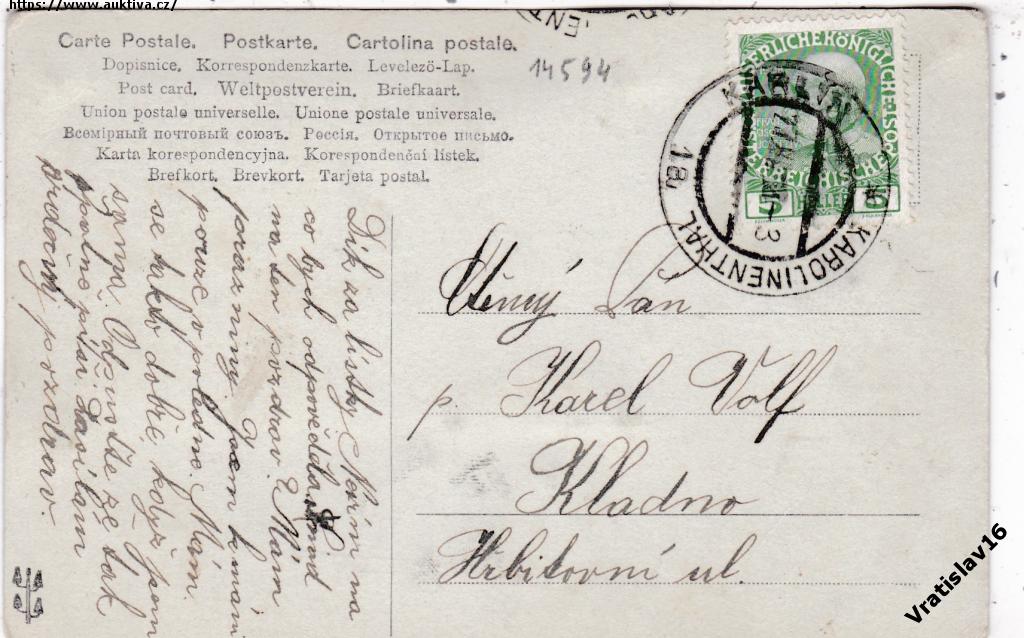 https://www.auktiva.cz/
Carte Postale. Postkarte. Cartolina postale.
Dopisnice. Korrespondenzkarte. Levelezö-Lap.
Post card. Weltpostverein. Briefkaart.
Union postale universelle. Unione postale universale.
Всемірный почтовый союзъ. Россія. Открытое письмо.
Karta korespondencyjna. Korespondenční lístek.
Brefkort. Brevkort. Tarjeta postal.
14594
KAISERLICHE KÖNIGLICHE ÖSTERREICHISCHE POST
5 HELLER 5
KARLÍN
KAROLINENTHAL
18
Dík za lístky. Nevím na
co bych odpovědě
na den pozdrav? Mám
. Jsem
pouze o poledne. Mám
se tukto dobře, když jsem
syma. Odpusťte že tak
špatně píši. Zasílám
Srdečný pozdrav.
Ctěný Pán
p. Karel Volf
Kladno
Hrbitovní ul.
Vratislav16